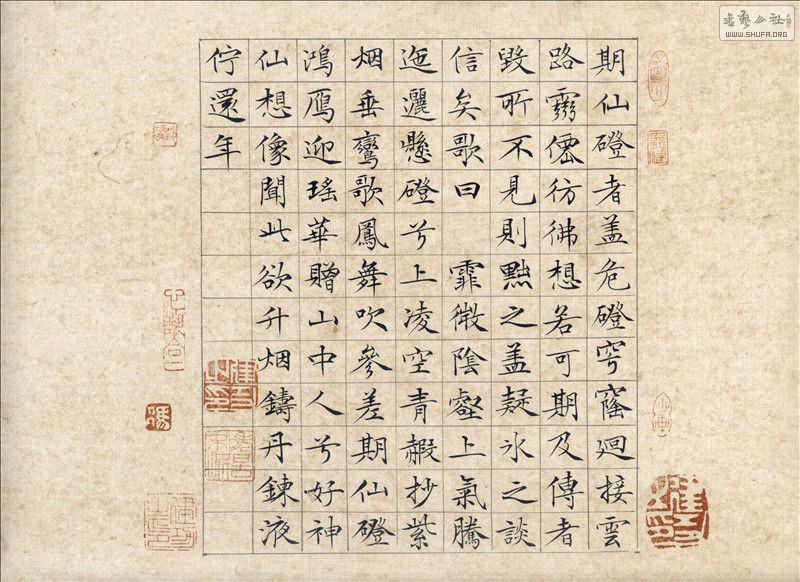 期仙磴者盖危磴穹窿廻接雲
路靈僊彷彿想若可期及傳者
毀所不見則黙之盖疑氷之談
信矣歌曰 霏微陰壑上氣騰
迤邐懸磴兮上凌空青赮抄紫
烟垂鸞歌鳳舞吹參差期仙磴
鴻鴈迎瑤華贈山中人兮好神
仙想像聞此欲升烟鑄丹鍊液
佇還年
WWW.SHUFA.ORG